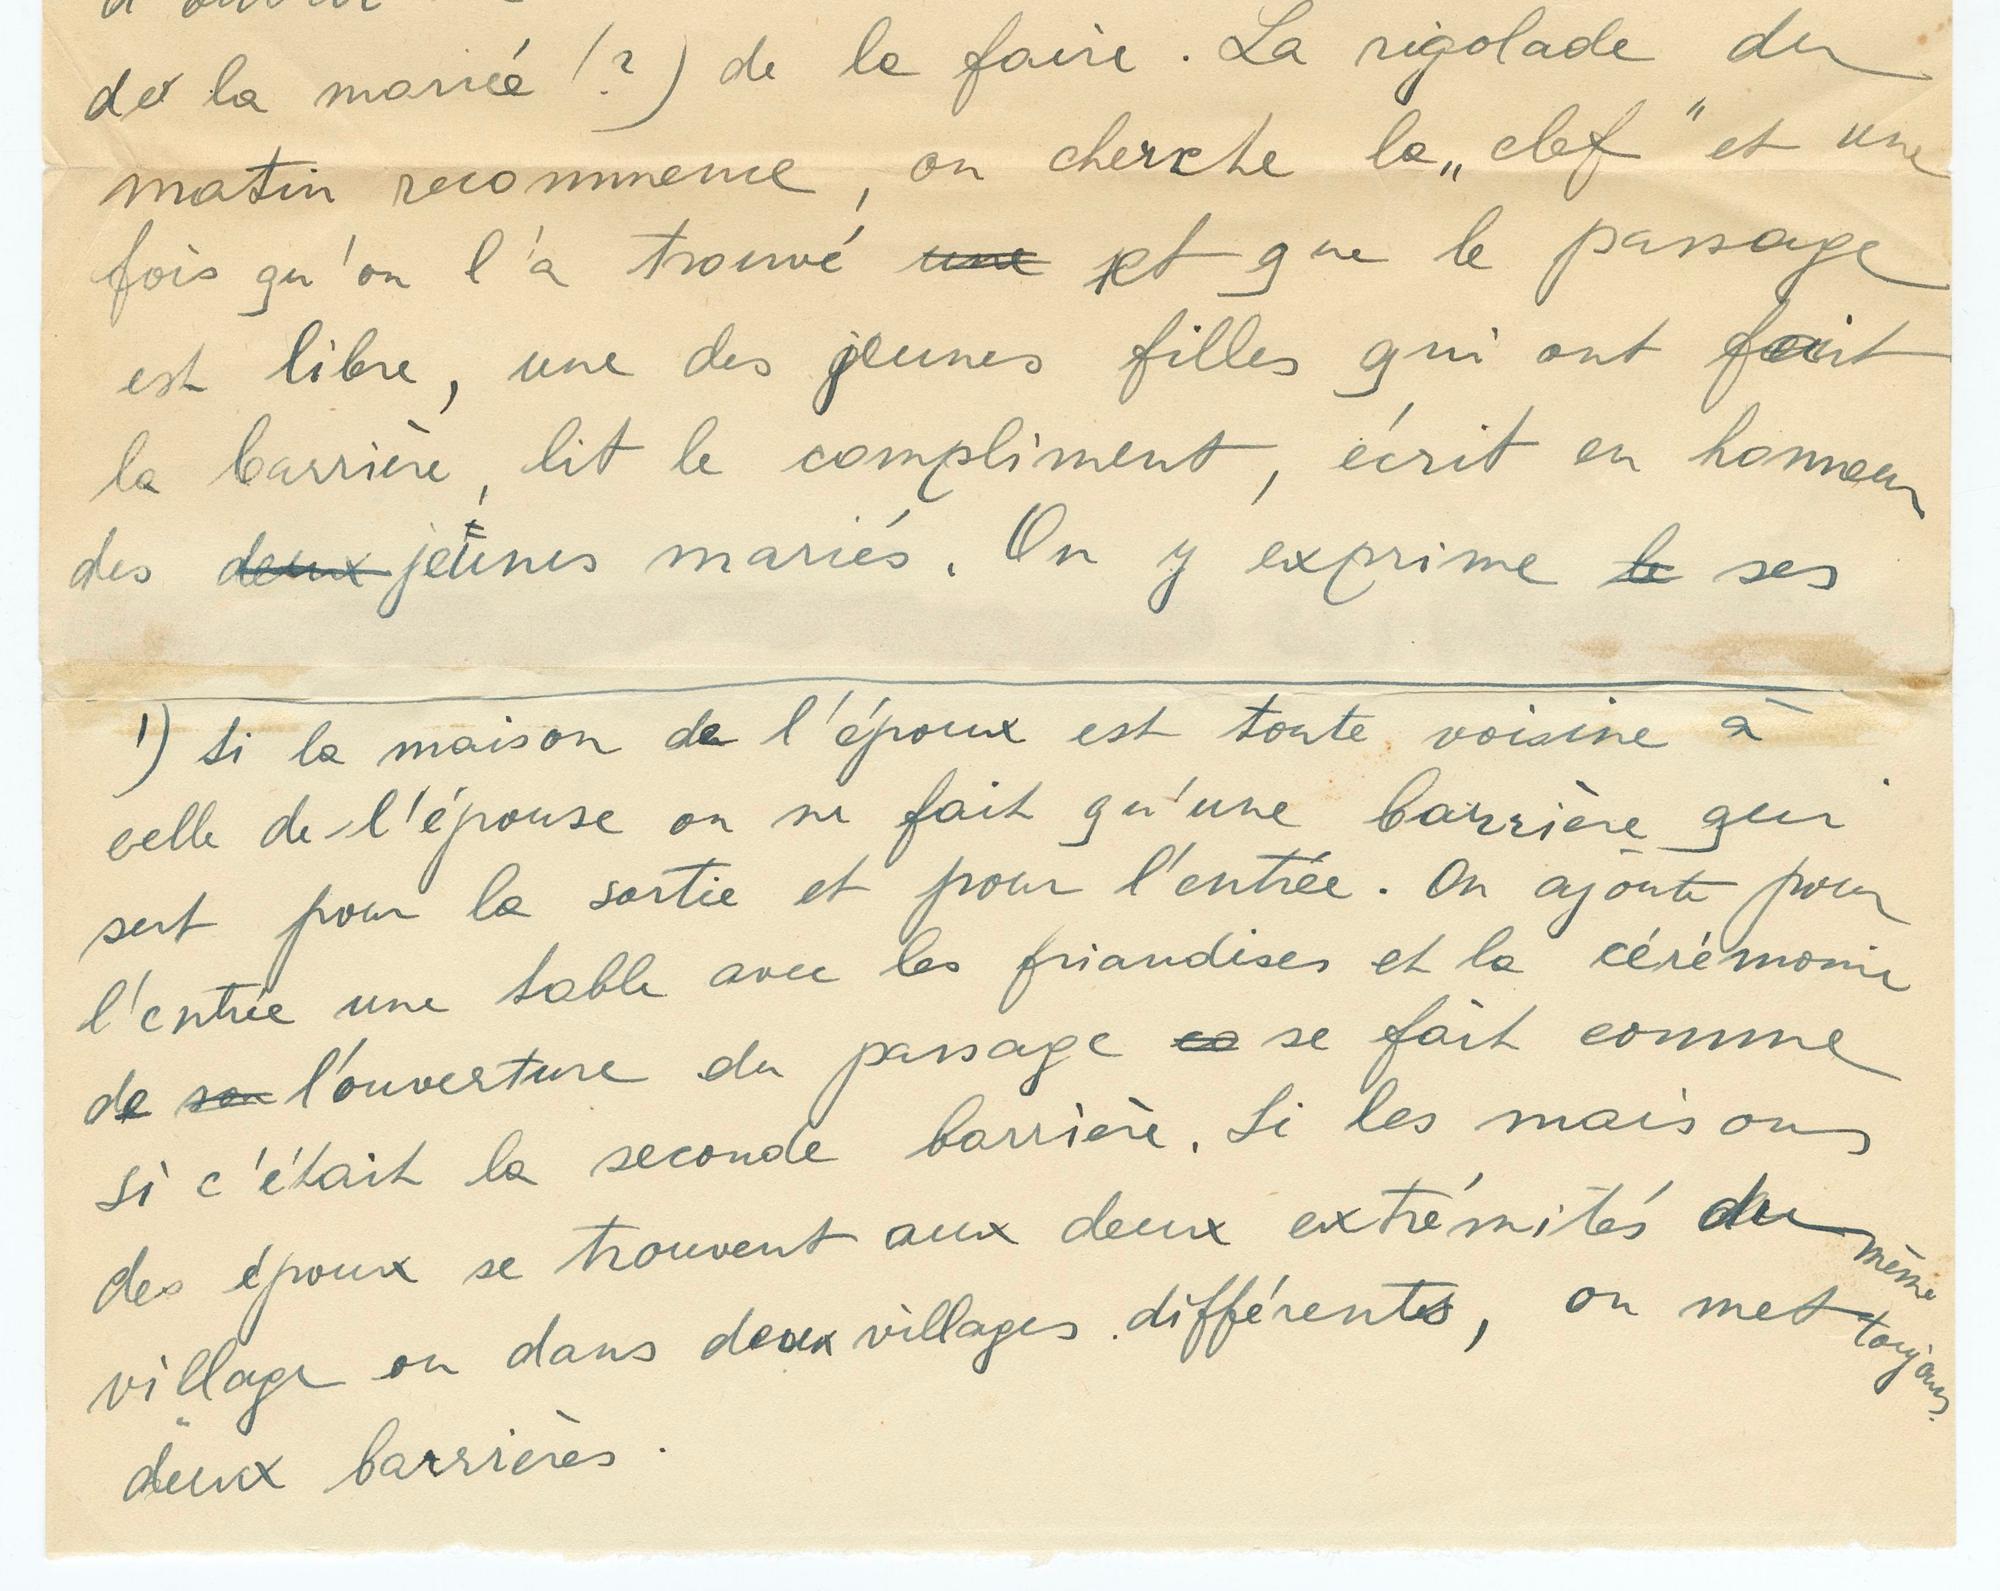 de la mariée !?) de le faire. La rigolade du
matin recommence, on cherche la „clef" et une
fois qu'on l'a trouvé ~~une~~ et que le passage
est libre, une des jeunes filles qui ont fait
la barrière, lit le compliment, écrit en honneur
des ~~deux~~ jeunes mariés. On y exprime ~~le~~ ses
1) Si la maison de l'époux est toute voisine à
celle de l'épouse on ne fait qu'une barrière qui
sert pour la sortie et pour l'entrée. On ajoute pour
l'entrée une table avec les friandises et la cérémonie
de ~~son~~ l'ouverture du passage ~~ce~~ se fait comme
si c'était la seconde barrière. Si les maisons
des époux se trouvent aux deux extrémités du même
village ou dans deux villages différents, on met toujours
deux barrières.